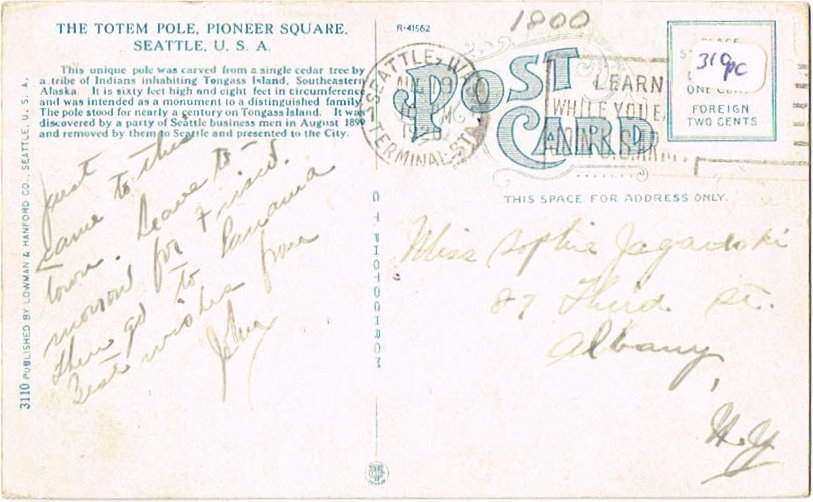 THE TOTEM POLE, PIONEER SQUARE,
SEATTLE, U. S. A.
This unique pole was carved from a single cedar tree by
a tribe of Indians inhabiting Tongass Island, Southeastern
Alaska. It is sixty feet high and eight feet in circumference
and was intended as a monument to a distinguished family.
The pole stood for nearly a century on Tongass Island. It was
discovered by a party of Seattle business men in August 1899
and removed by them to Seattle and presented to the City.
Just
came to this
town. Leave to-
morrow for Frisco.
then go to Panama
Best wishes from
John
3110 PUBLISHED BY LOWMAN & HANFORD CO., SEATTLE, U. S. A.
C T PHOTOCHROM
R-41562
1800
POST
CARD
SEATTLE, WASH
TERMINAL STA
LEARN
WHILE YOU
319pc
ONE CENT
FOREIGN
TWO CENTS
THIS SPACE FOR ADDRESS ONLY.
Miss Sophie
87 Third. St.
Albany,
N.Y